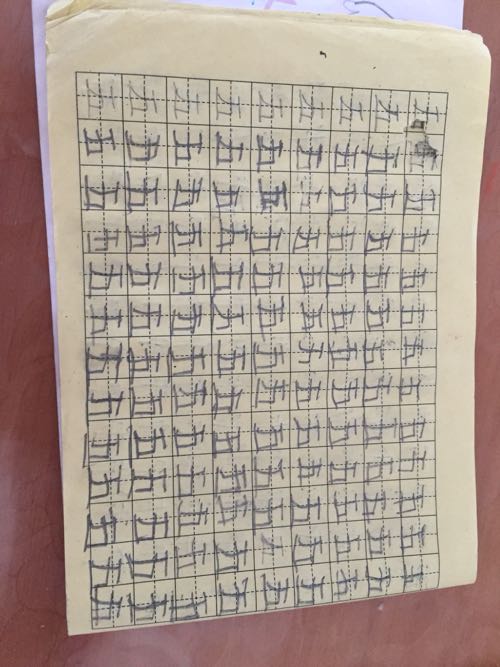 五五五五五五五五五
五五五五五五五五五
五五五五五五五五五
五五五五五五五五五
五五五五五五五五五
五五五五五五五五五
五五五五五五五五五
五五五五五五五五五
五五五五五五五五五
五五五五五五五五五
五五五五五五五五五
五五五五五五五五五
五五五五五五五五五